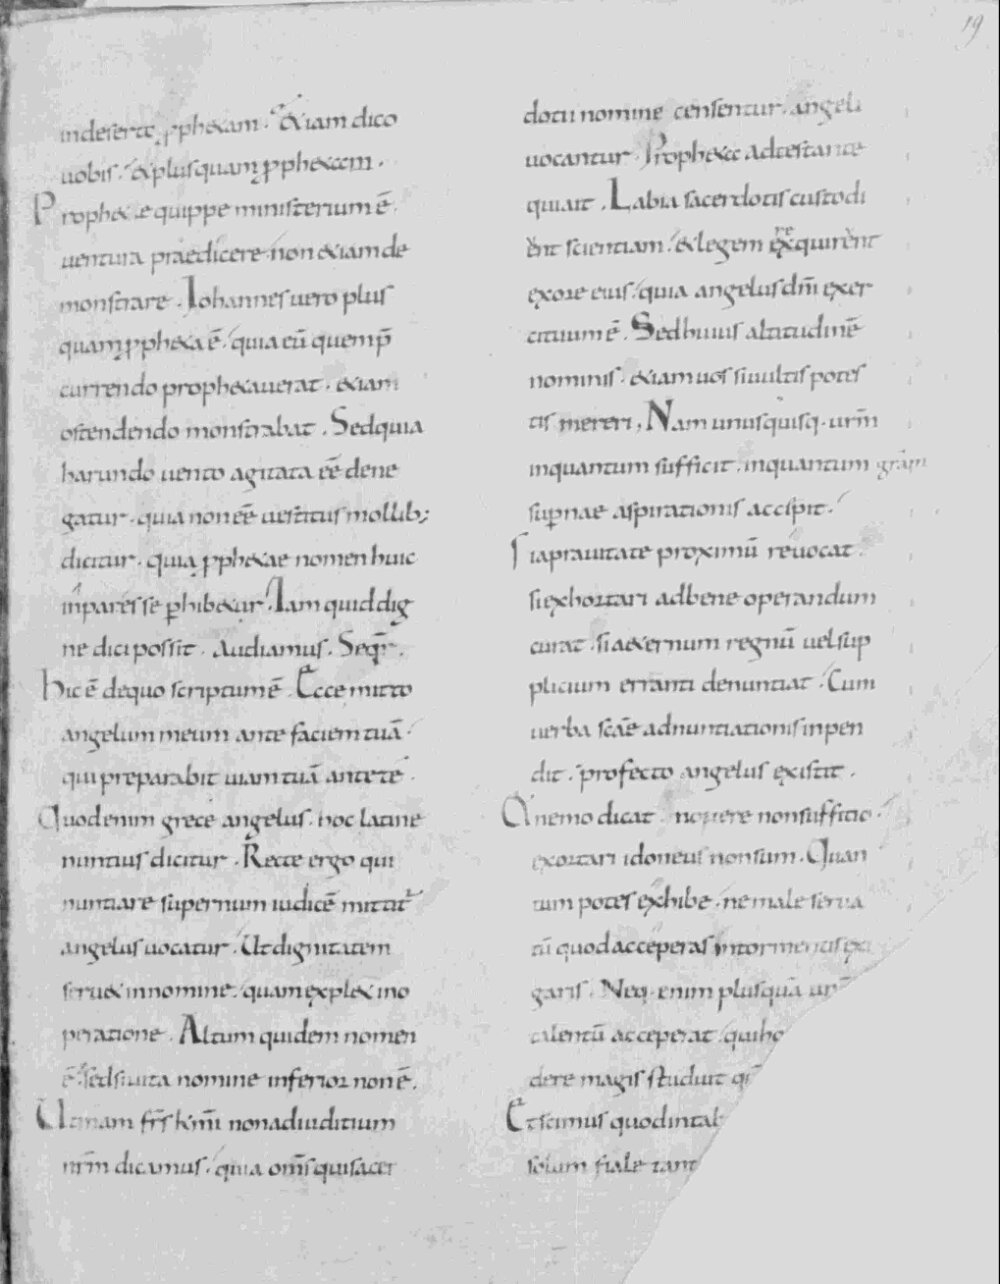 19
in deserto, ꝓphetam. etiam dico
uobis. et plus quam ꝓphetam.
Prophetae quippe ministerium ē
uentura praedicere. non etiam de
monstrare. Iohannes uero plus
quam ꝓpheta ē. quia eū quem p̄
currendo prophetauerat. etiam
ostendendo monstrabat. Sed quia
harundo uento agitata eē dene
gatur. quia non eē uestitus mollib;
dicitur. quia ꝓphetae nomen huic
inpar esse ꝑhibetur. Iam quid dig
ne dici possit. Audiamus. Seqr̄.
hic ē de quo scriptum ē. Ecce mitto
angelum meum ante faciem tuā.
qui preparabit uiam tuā ante te.
Quod enim grece angelus. hoc latine
nuntius dicitur. Recte ergo qui
nuntiare supernum iudicē mittit̄
angelus uocatur. Ut dignitatem
seruet in nomine. quam explet in o
peratione. Altum quidem nomen
ē. sed uita nomine inferior non ē.
Utinam fr̄s km̄i non ad iuditium
nr̄m dicamus. quia om̄s qui sacer
dotii nomine censentur. angeli
uocantur. Propheta adtestante
qui ait. Labia sacerdotis custodi
ent scientiam. et legem exquirent
ex ore eius. quia angelus dn̄i exer
cituum ē. Sed huius altitudinē
nominis. etiam uos si uultis potes
tis mereri, Nam unusquisq. urm̄
inquantum sufficit. inquantum gr̄am
supnae aspirationis accipit.
si a prauitate proximū reuocat.
si exhortari ad bene operandum
curat. si aeternum regnū uel sup
plicium erranti denuntiat. Cum
uerba scāe adnuntiationis inpen
dit. profecto angelus existit.
Et nemo dicat. nonere non sufficio.
exortari idoneus non sum. Quan
tum potes exhibe. ne male serua
tū quod acceperas in tormentis exi
garis. Neq. enim plusquā un̄
talentū acceperat. qui ho
dere magis studuit q̄
Et scimus quod in tab
solum fiale tant